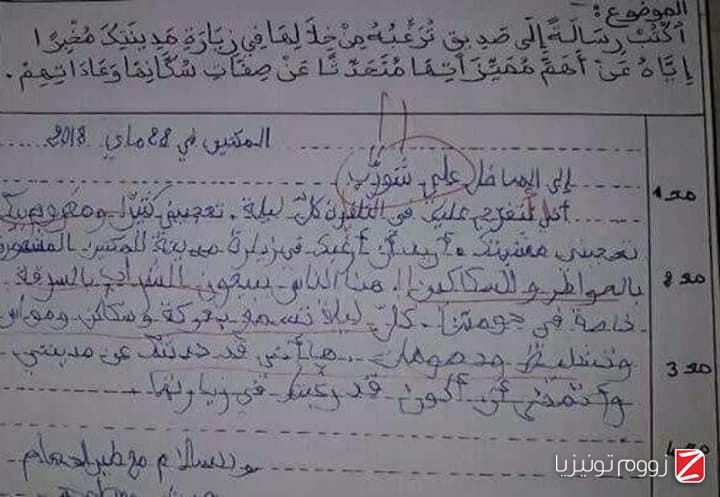 الموضوع:
اُكْتُبْ رِسَالَةً إِلَى صَدِيقٍ تُرَغِّبُهُ مِنْ خِلَالِهَا فِي زِيَارَةِ مَدِينَتِكَ مُخْبِرًا
إِيَّاهُ عَنْ أَهَمِّ مُمَيِّزَاتِهَا مُتَحَدِّثًا عَنْ صِفَاتِ سُكَّانِهَا وَعَادَاتِهِمْ.
المكنين في 22 ماي 2018
إلى المناضل علي شورّب
معـ1
أنا نتفرج عليك في التلفزة كلّ ليلة. تعجبني كثيرًا
تعجبني مشيتك. أريد أن أرغبك في زيارة مدينة المكنين المشهورة
معـ2
بالمواطر والسكاكين!! هنا الناس يبيعون الشراب بالسرقة
خاصة في حومتنا. كلّ ليلة نسمع بعركة وسكاكن ومواس
معـ3
وتشليط ها أنني قد حدثتك عن مدينتي
وأتمنى أن أكون قد رغبتك في زيارتها
معـ4
والسلام
زووم تونيزيا